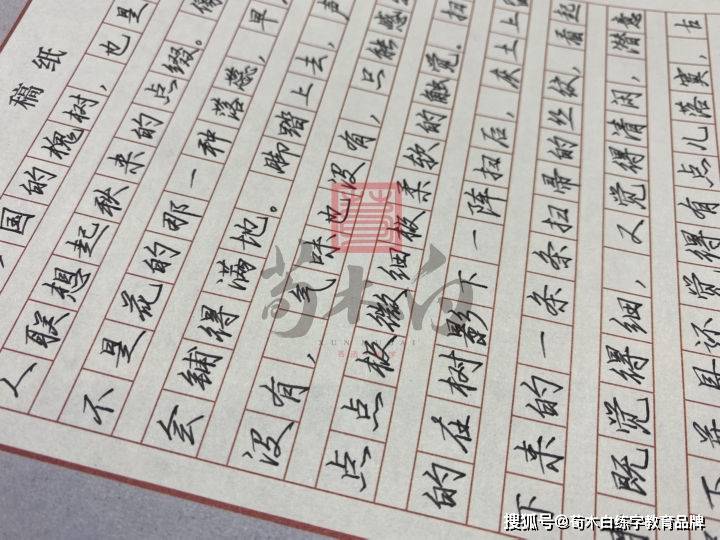 稿纸
国的槐树，也是
人联想起秋来的点缀。像
不是花的那一种落蕊，早
会铺得满地。脚踏上去，声
没有，气味也没有，只能感
点点极微细极柔软的触觉。扫
的在树影下一阵扫后，灰土上留
下来的一条条扫帚的丝纹，看起
既觉得细，又觉得清闲，潜意
下并且还觉得有点儿落寞，古
荀木白
搜狐号@荀木白练字教育品牌